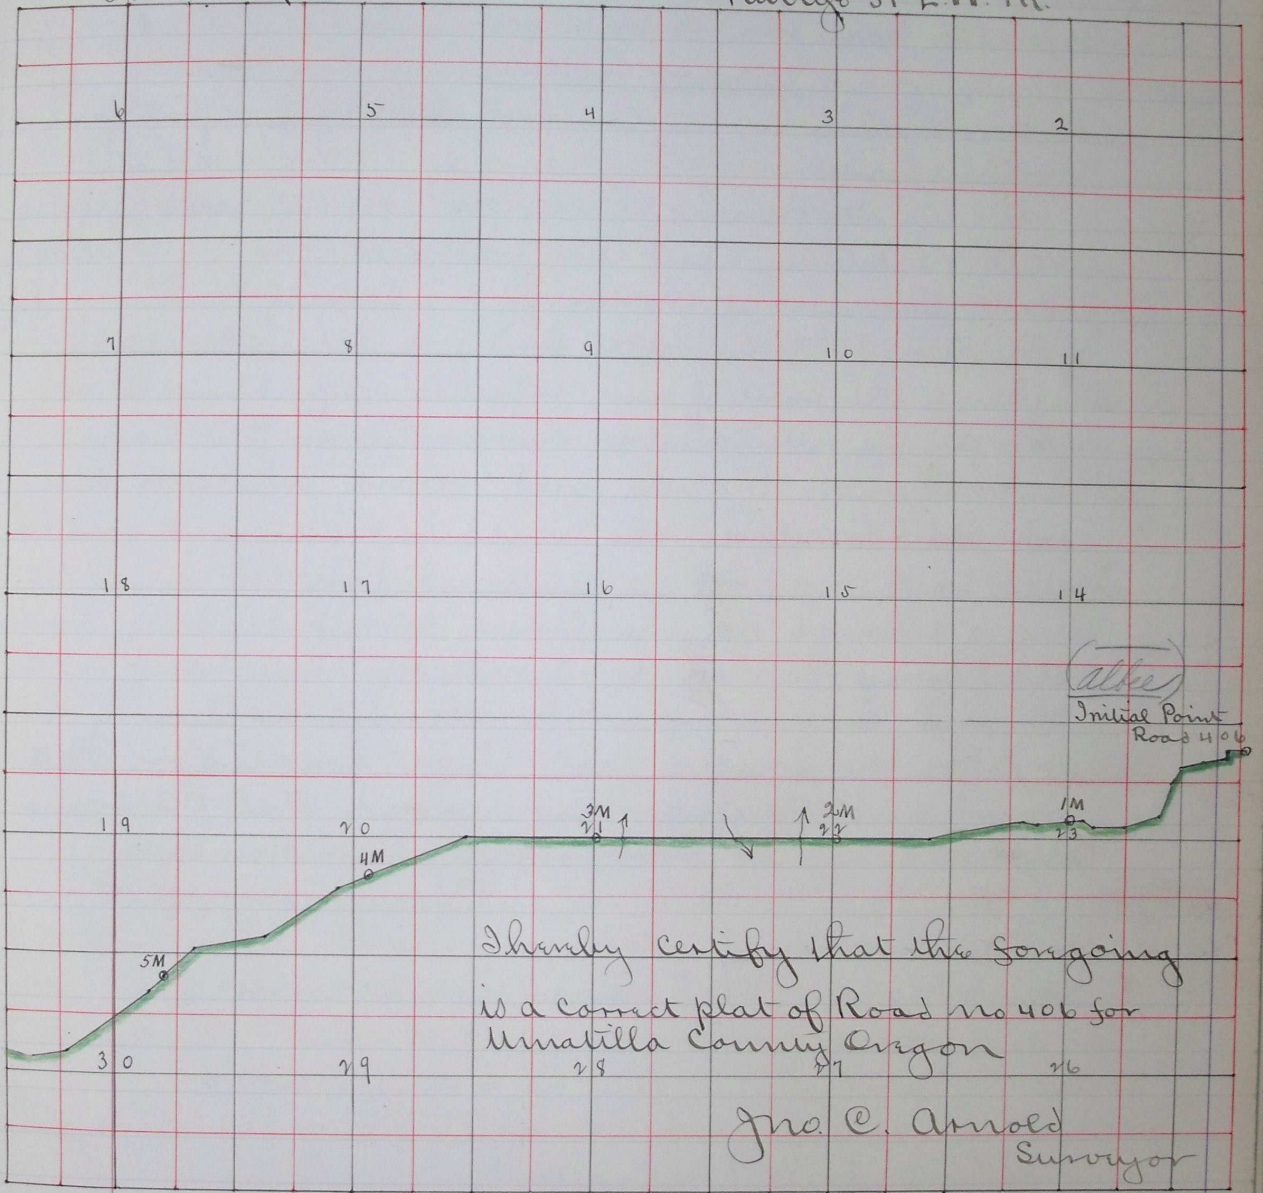 6 5 4 3 2
7 8 9 10 11
18 17 16 15 14
Initial Point
Road 406
19 20 3M 21 2M 22 1M 23
4M
5M
I hereby certify that the foregoing
is a correct plat of Road no 406 for
Umatilla County, Oregon
30 29 28 27 26
Jno. C. Arnold
Surveyor